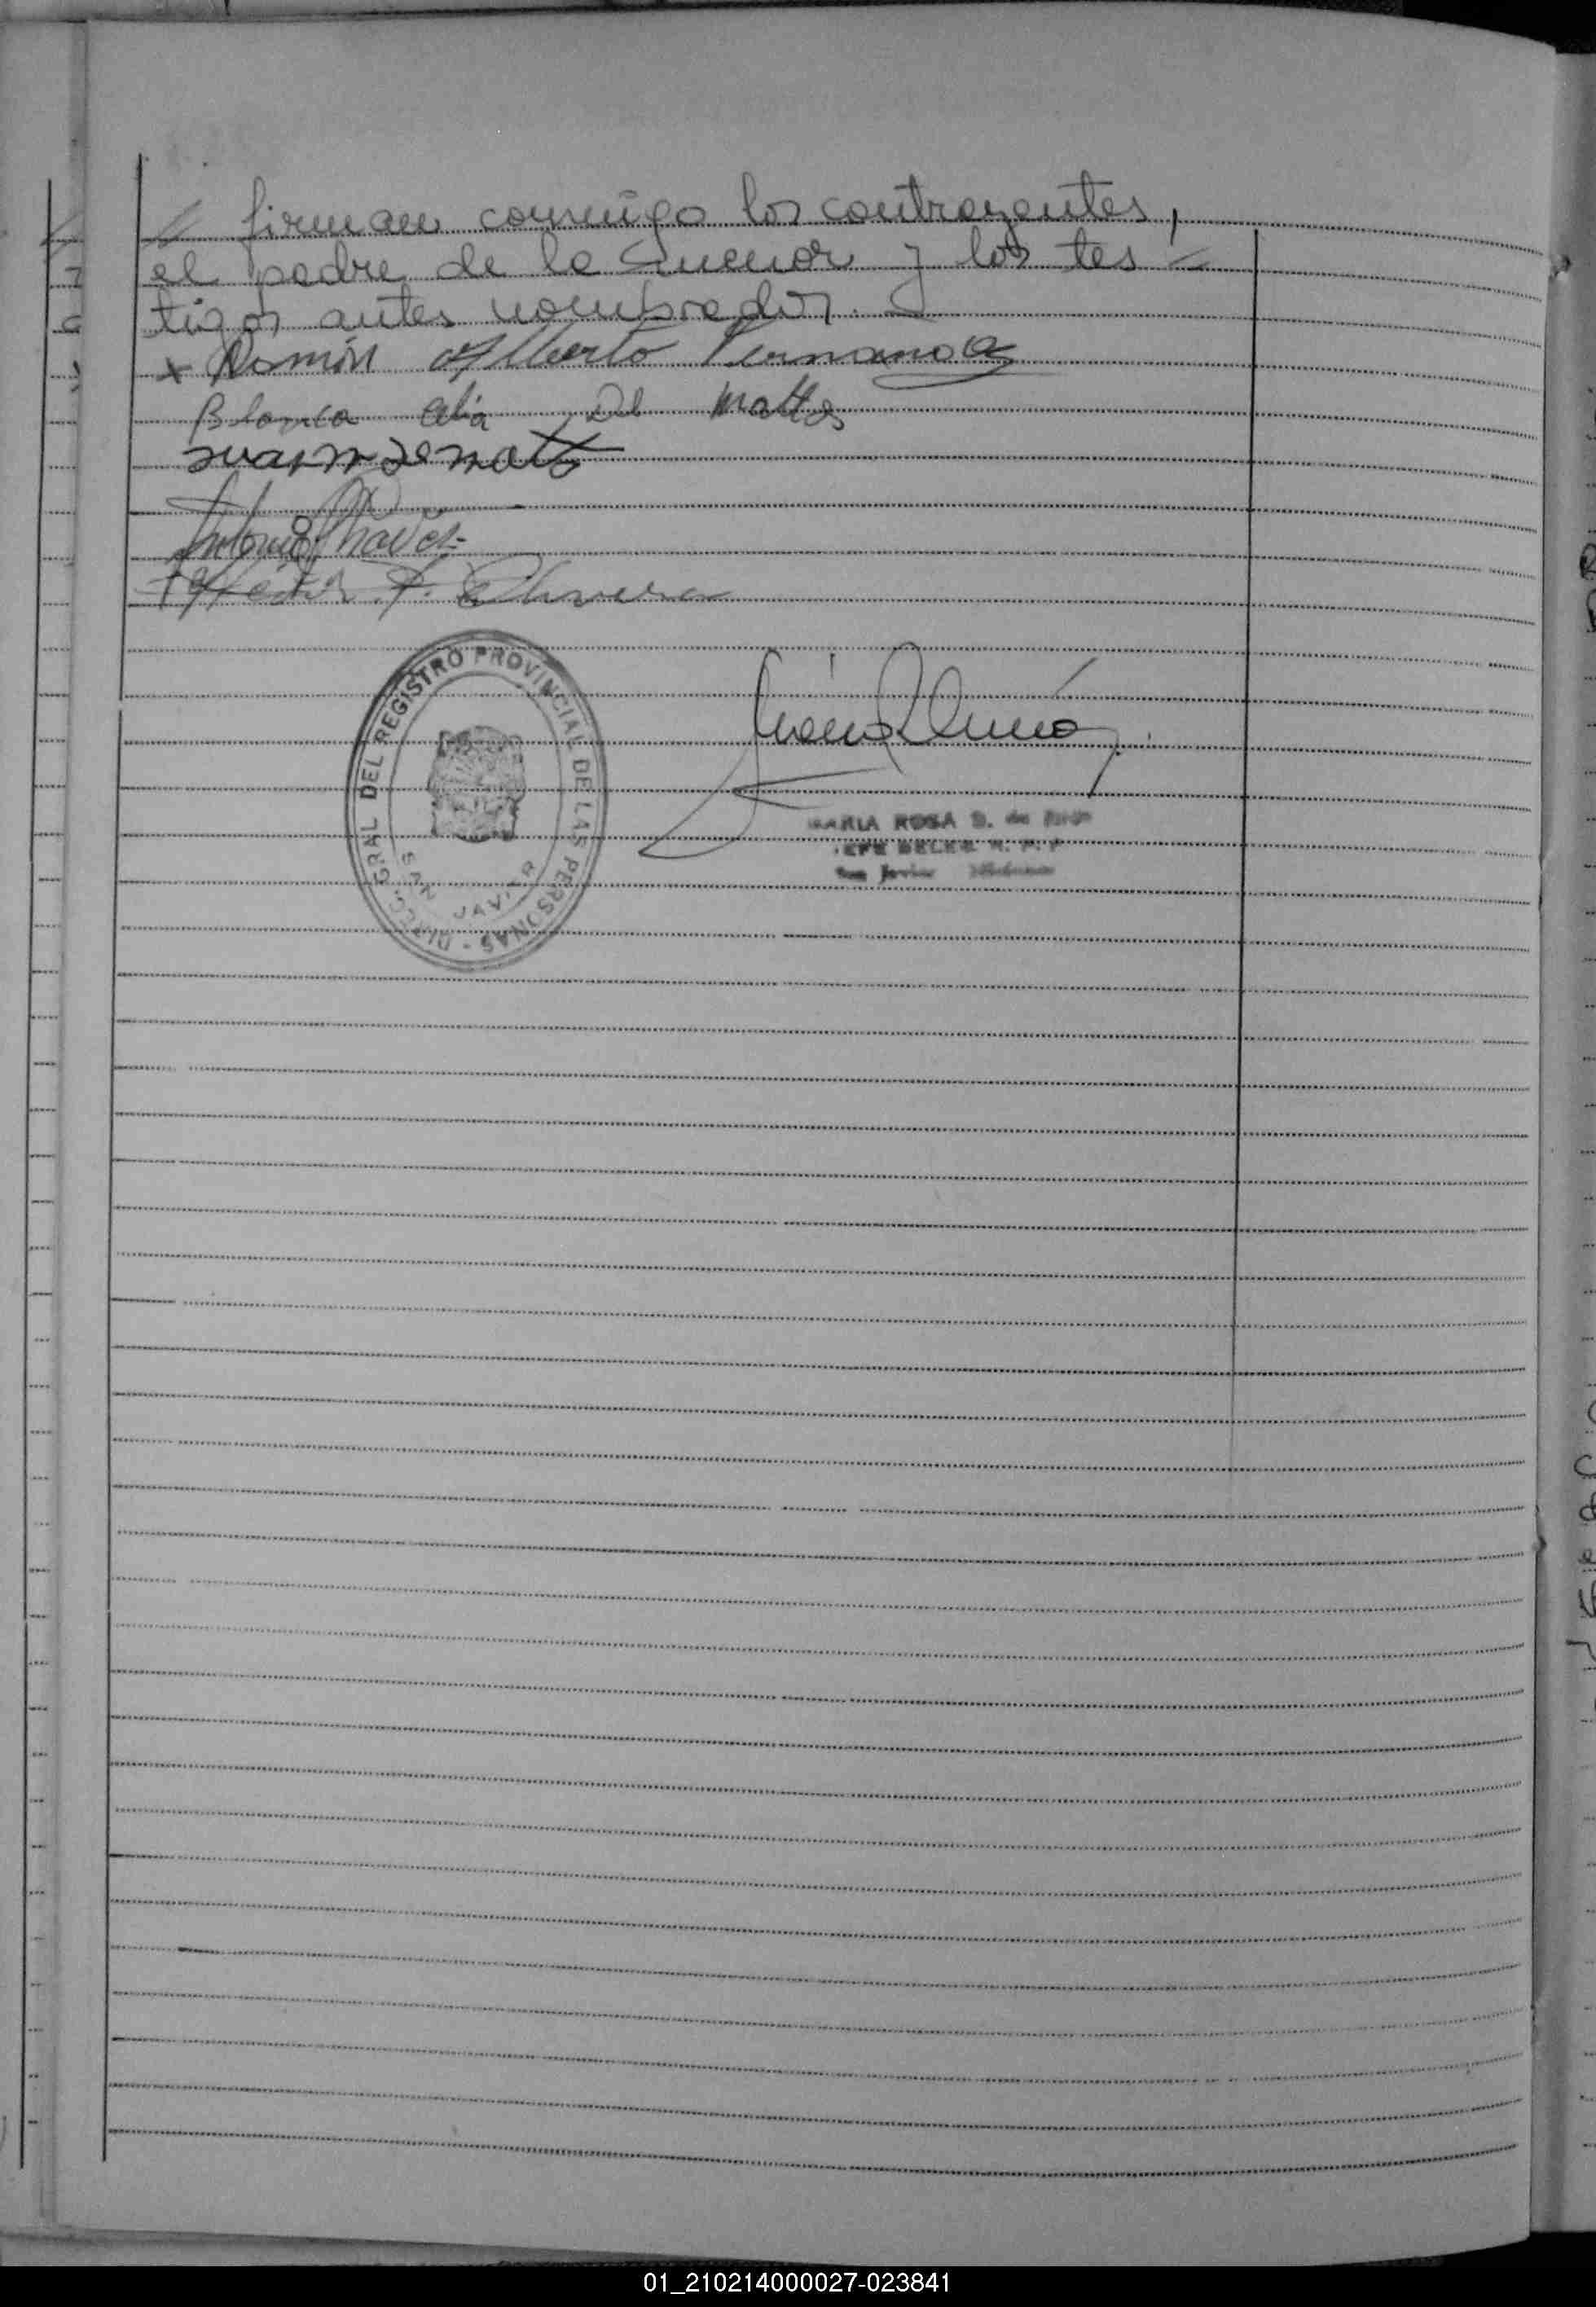 // firman conmigo los contrayentes,
el padre de la menor y los tes =
tigos antes nombrados.
x Ramón Alberto Fernandez
Blanca Celia De Mattos
Juan M de matto
Antonio Chavez
Héctor F. Olivera
DIREC. GRAL DEL REGISTRO PROVINCIAL DE LAS PERSONAS -
SAN JAVIER
MARIA ROSA D. de
JEFE DELEG. R. P. P
San Javier Misiones
01_210214000027-023841